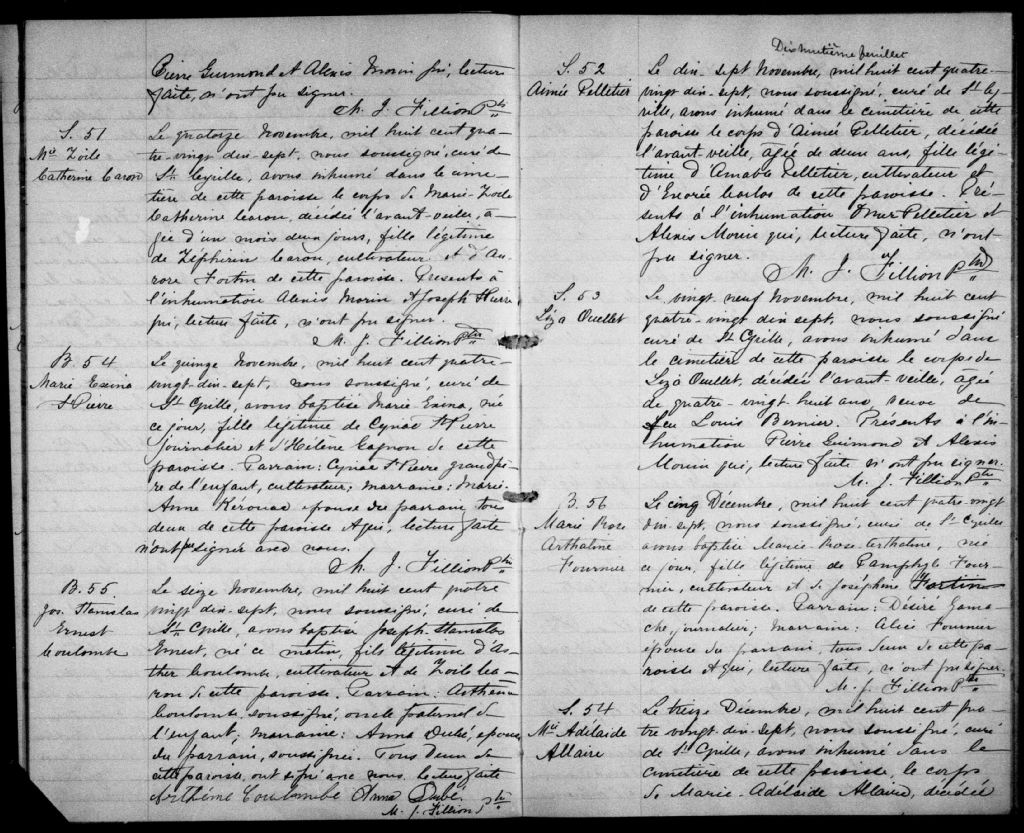 Pierre Guimond et Alexis Morin qui, lecture
faite, n'ont pu signer.
M. J. Fillion Ptre
S. 51
Mie Zoile
Catherine Caron
Le quatorze Novembre, mil huit cent qua-
tre-vingt dix-sept, nous soussigné, curé de
St Cyrille, avons inhumé dans le cime-
tière de cette paroisse le corps de Marie-Zoile
Catherine Caron, décédée l'avant-veille, a-
gée d'un mois deux jours, fille légitime
de Zépherin Caron, cultivateur et d'Au-
rore Fortin de cette paroisse. Présents à
l'inhumation Alexis Morin et Joseph
qui, lecture faite, n'ont pu signer.
M. J. Fillion Ptre
B. 54
Marie Exina
St Pierre
Le quinze Novembre, mil huit cent quatre
vingt-dix-sept, nous soussigné, curé de
St Cyrille, avons baptisé Marie-Exina, née
ce jour, fille légitime de Cyriac St Pierre
journalier et d'Hélène Gagnon de cette
paroisse. Parrain: Cyriac St Pierre grandpè-
re de l'enfant, cultivateur; marraine: Marie-
Anne Kérouac épouse du parrain, tous
deux de cette paroisse et qui, lecture faite
n'ont pu signer avec nous.
M. J. Fillion Ptre
B. 55.
Jos. Stanislas
Ernest
Coulombe
Le seize Novembre, mil huit cent quatre
vingt dix-sept, nous soussigné, curé de
St Cyrille, avons baptisé Joseph-Stanislas
Ernest, né ce matin, fils légitime d'Ar-
thur Coulombe, cultivateur et de Zoile Ca-
ron de cette paroisse. Parrain: Arthème
Coulombe, soussigné, oncle paternel de
l'enfant; marraine: Anna Dubé, épouse
du parrain, soussignée. Tous deux de
cette paroisse, ont signé avec nous. Lecture faite
Arthème Coulombe Anna Dubé
M. J. Fillion Ptre
Dix huitième feuillet
S. 52
Aimée Pelletier
Le dix-sept Novembre, mil huit cent quatre-
vingt dix-sept, nous soussigné, curé de St Cy-
rille, avons inhumé dans le cimetière de cette
paroisse le corps d'Aimée Pelletier, décédée
l'avant-veille, âgée de deux ans, fille légi-
time d'Amable Pelletier, cultivateur et
d'Enorée de cette paroisse. Pré-
sents à l'inhumation Pelletier et
Alexis Morin qui, lecture faite, n'ont
pu signer.
M. J. Fillion Ptre
S. 53
Léza Ouellet
Le vingt neuf Novembre, mil huit cent
quatre-vingt dix-sept, nous soussigné
curé de St Cyrille, avons inhumé dans
le cimetière de cette paroisse le corps de
Léza Ouellet, décédée l'avant-veille, âgée
de quatre-vingt huit ans, veuve de
feu Louis Bernier. Présents à l'in-
humation Pierre Guimond et Alexis
Morin qui, lecture faite n'ont pu signer.
M. J. Fillion Ptre
B. 56
Marie Rose
Arthaline
Fournier
Le cinq Décembre, mil huit cent quatre vingt
dix-sept, nous soussigné, curé de St Cyrille
avons baptisé Marie-Rose-Arthaline, née
ce jour, fille légitime de Pamphyle Four-
nier, cultivateur et de Joséphine Fortin
de cette paroisse. Parrain: Désiré Gama-
che, journalier; marraine: Alice Fournier
épouse du parrain, tous deux de cette pa-
roisse et qui, lecture faite, n'ont pu signer.
M. J. Fillion Ptre
S. 54
Mie Adélaide
Allaire
Le treize Décembre, mil huit cent qua-
tre vingt dix-sept, nous soussigné, curé
de St Cyrille, avons inhumé dans le
cimetière de cette paroisse, le corps
de Marie-Adélaide Allaire, décédée